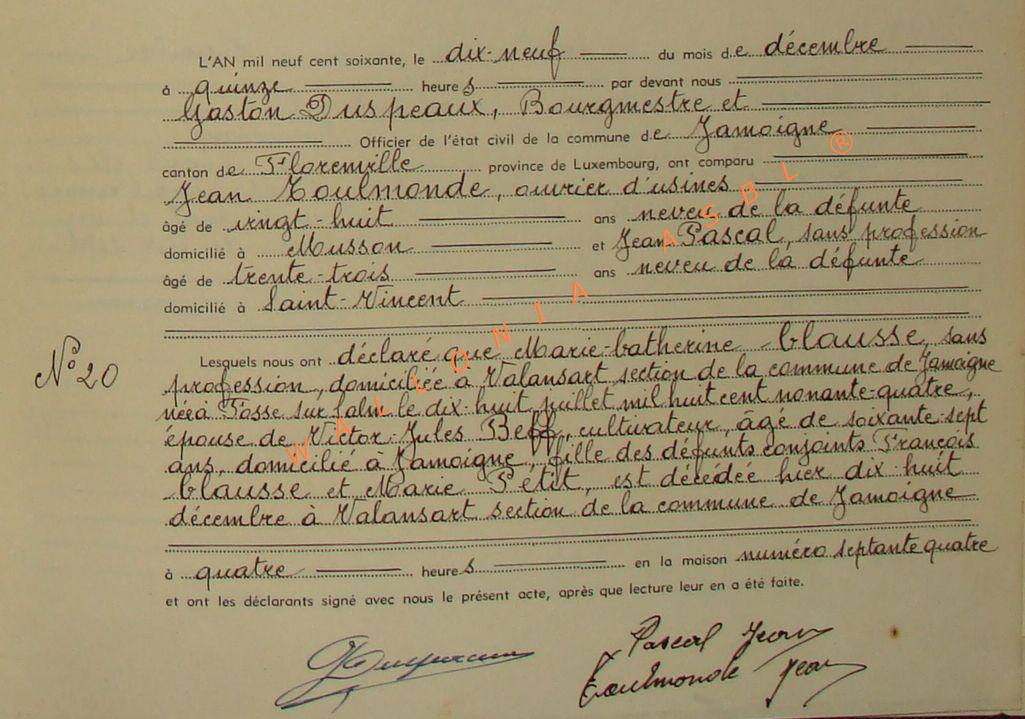 L'AN mil neuf cent soixante, le dix-neuf du mois de décembre
à quinze heures par devant nous
Gaston Duspeaux, Bourgmestre et
Officier de l'état civil de la commune de Jamoigne
canton de Florenville, province de Luxembourg, ont comparu
Jean Toulmonde, ouvrier d'usines
âgé de vingt-huit ans neveu de la défunte
domicilié à Musson et Jean Pascal, sans profession
âgé de trente-trois ans neveu de la défunte
domicilié à Saint-Vincent
N° 20
Lesquels nous ont déclaré que Marie-Catherine Clausse, sans
profession, domiciliée à Valansart section de la commune de Jamoigne
née à Fosse sur Salm le dix-huit juillet mil huit cent nonante-quatre,
épouse de Victor-Jules Beff, culturateur, âgé de soixante-sept
ans, domicilié à Jamoigne, fille des défunts conjoints François
Clausse et Marie Petit, est décédée hier dix-huit
décembre à Valansart section de la commune de Jamoigne
à quatre heures en la maison numéro septante quatre
et ont les déclarants signé avec nous le présent acte, après que lecture leur en a été faite.
Pascal Jean
Toulmonde Jean
WALLONIA ASBL ®